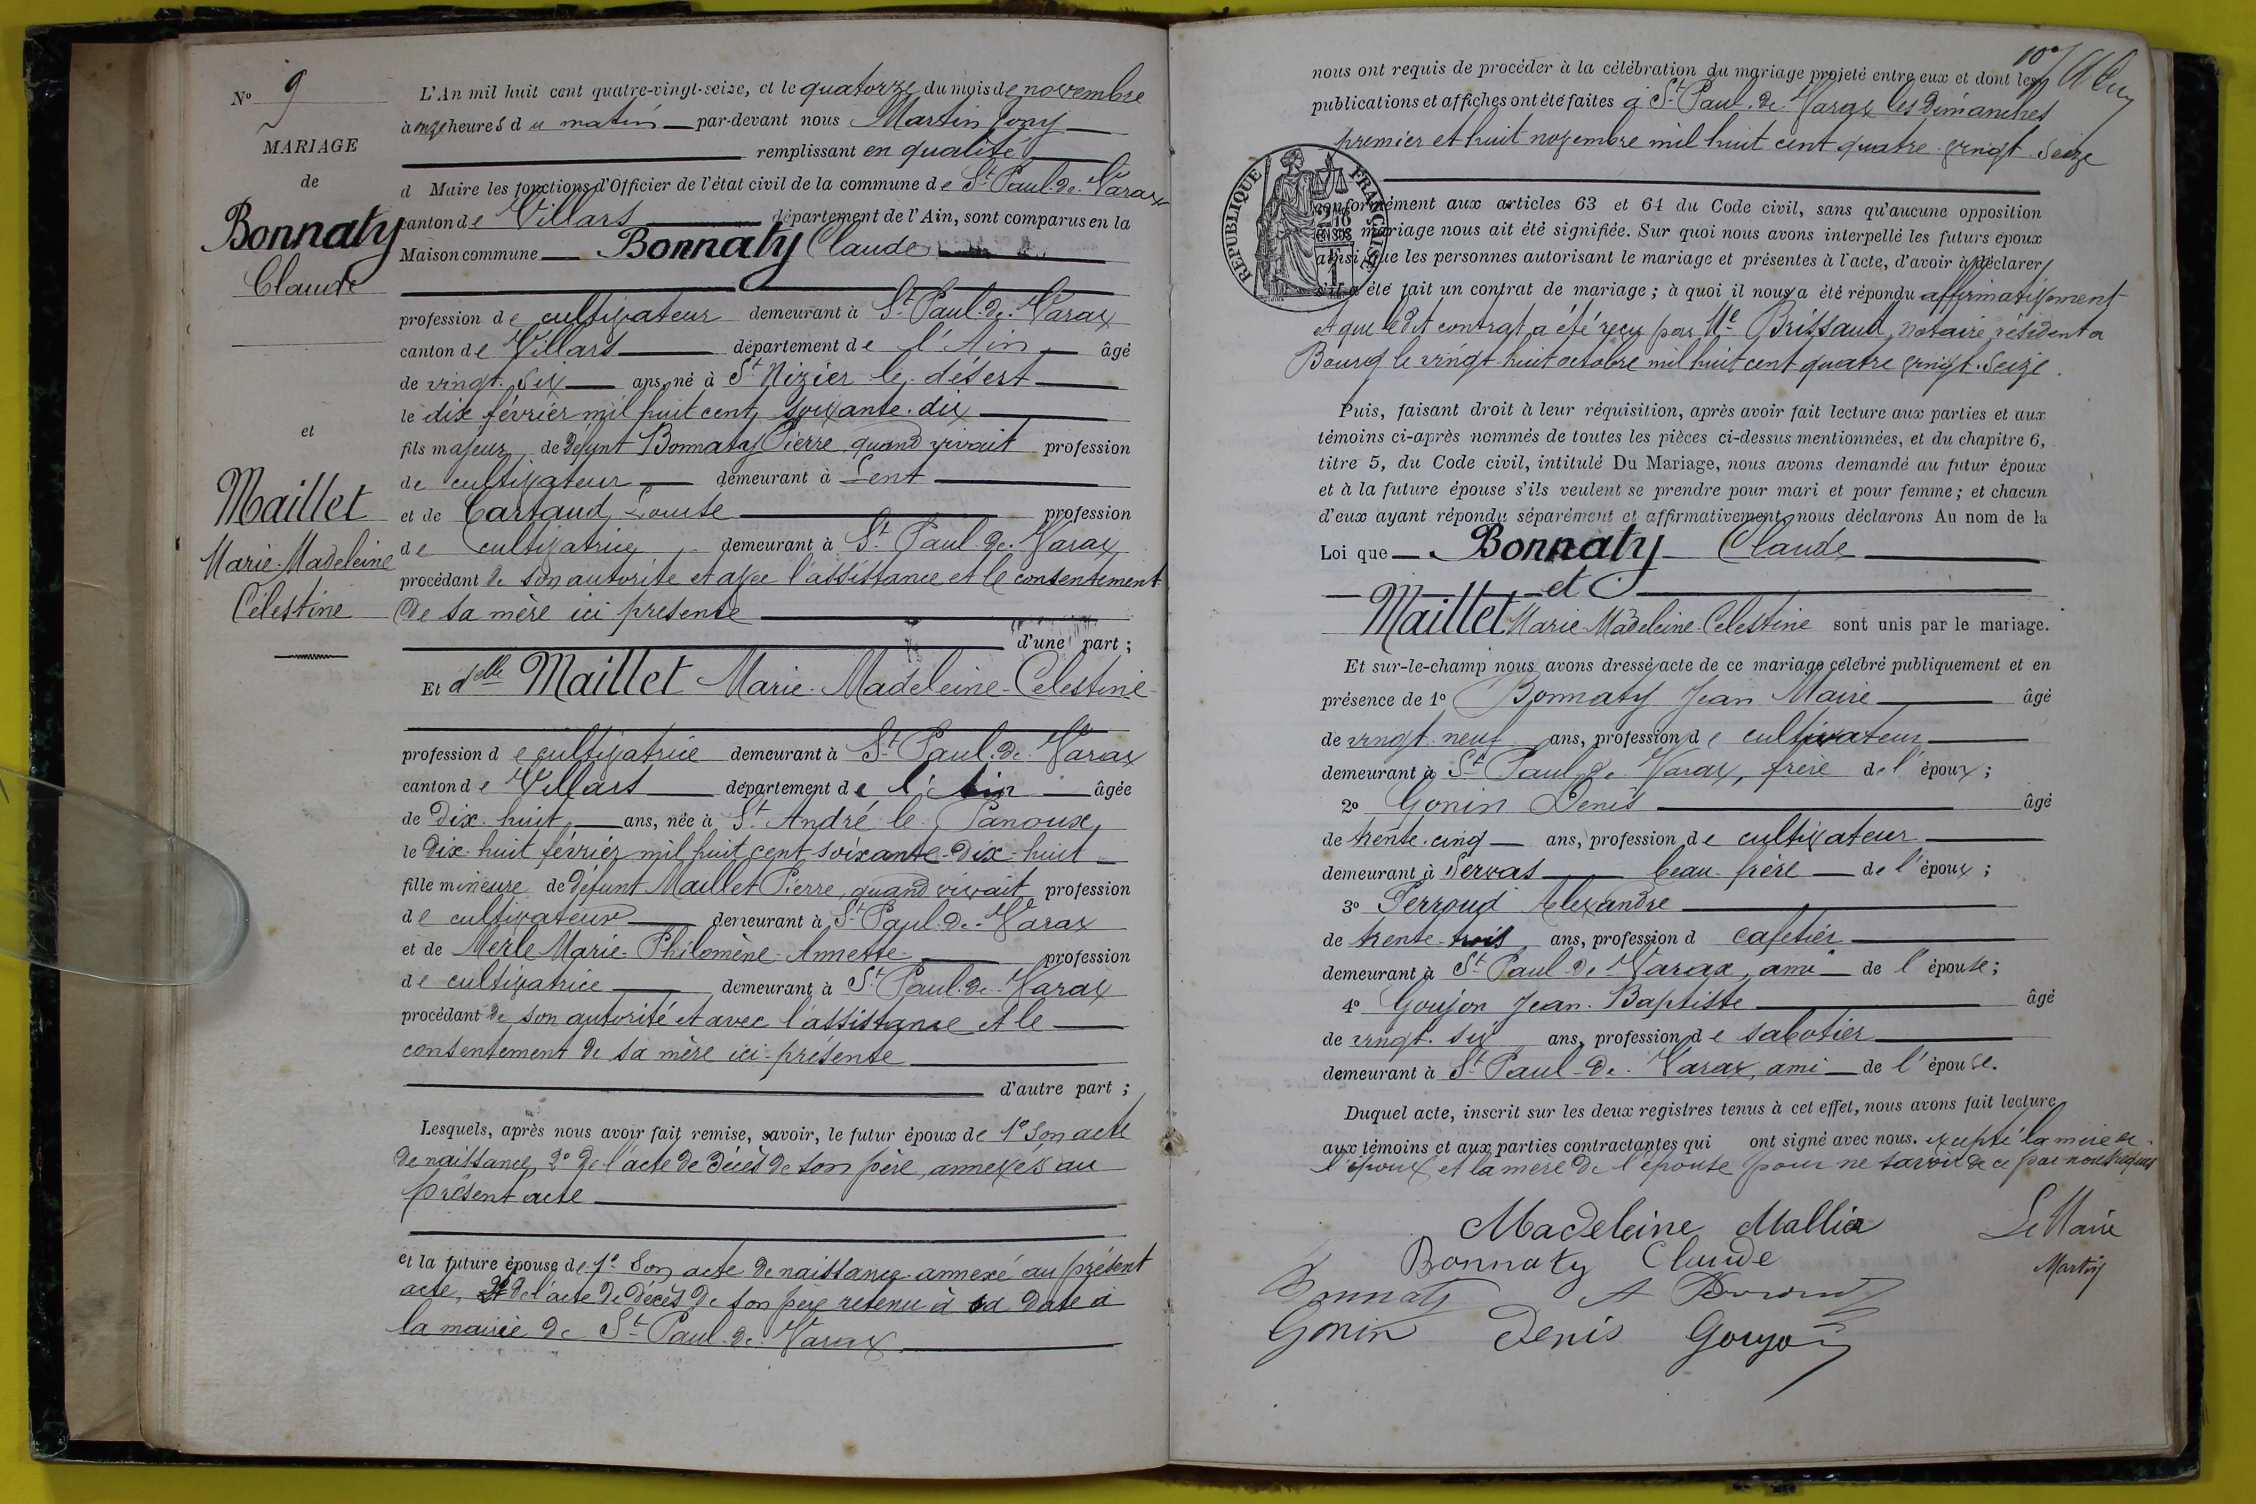 N° 9
MARIAGE
de
Bonnaty
Claude
et
Maillet
Marie-Madeleine
Célestine
L'An mil huit cent quatre-vingt-seize, et le quatorze du mois de novembre
à onze heures du matin par-devant nous Martin Jony
remplissant en qualité
d Maire les fonctions d'Officier de l'état civil de la commune de St Paul-de-Varax
canton de Villars département de l'Ain, sont comparus en la
Maison commune Bonnaty Claude
profession de cultivateur demeurant à St Paul-de-Varax
canton de Villars département de l'Ain âgé
de vingt-six ans, né à St Nizier le désert
le dix février mil huit cent soixante-dix
fils majeur de défunt Bonnaty Pierre quand vivait profession
de cultivateur demeurant à Lent
et de Cartaud Louise profession
de cultivatrice demeurant à St Paul-de-Varax
procédant de son autorité et avec l'assistance et le consentement
de sa mère ici présente
d'une part ;
Et delle Maillet Marie-Madeleine-Célestine
profession de cultivatrice demeurant à St Paul-de-Varax
canton de Villars département de l'Ain âgée
de dix-huit ans, née à St André le Panoux
le dix-huit février mil huit cent soixante-dix-huit
fille mineure de défunt Maillet Pierre quand vivait profession
de cultivateur demeurant à St Paul-de-Varax
et de Merle Marie-Philomène-Annette profession
de cultivatrice demeurant à St Paul-de-Varax
procédant de son autorité et avec l'assistance et le
consentement de sa mère ici présente
d'autre part ;
Lesquels, après nous avoir fait remise, savoir, le futur époux de 1° son acte
de naissance, 2° de l'acte de décès de son père, annexés au
présent acte
et la future épouse de 1° son acte de naissance annexé au présent
acte, 2° de l'acte de décès de son père retenu à sa date à
la mairie de St Paul-de-Varax
10e
nous ont requis de procéder à la célébration du mariage projeté entre eux et dont les
publications et affiches ont été faites à St Paul-de-Varax les dimanches
premier et huit novembre mil huit cent quatre-vingt-seize
RÉPUBLIQUE FRANÇAISE
conformément aux articles 63 et 64 du Code civil, sans qu'aucune opposition
mariage nous ait été signifiée. Sur quoi nous avons interpellé les futurs époux
ainsi que les personnes autorisant le mariage et présentes à l'acte, d'avoir à déclarer
s'il a été fait un contrat de mariage ; à quoi il nous a été répondu affirmativement
et que le dit contrat a été reçu par Me Brissaud, notaire résident à
Bourg le vingt-huit octobre mil huit cent quatre vingt-seize.
Puis, faisant droit à leur réquisition, après avoir fait lecture aux parties et aux
témoins ci-après nommés de toutes les pièces ci-dessus mentionnées, et du chapitre 6,
titre 5, du Code civil, intitulé Du Mariage, nous avons demandé au futur époux
et à la future épouse s'ils veulent se prendre pour mari et pour femme ; et chacun
d'eux ayant répondu séparément et affirmativement, nous déclarons Au nom de la
Loi que Bonnaty Claude
et
Maillet Marie-Madeleine-Célestine sont unis par le mariage.
Et sur-le-champ nous avons dressé acte de ce mariage célébré publiquement et en
présence de 1° Bonnaty Jean Marie âgé
de vingt-neuf ans, profession de cultivateur
demeurant à St Paul-de-Varax, frère de l'époux ;
2° Gonin Denis âgé
de trente-cinq ans, profession de cultivateur
demeurant à Servas beau-frère de l'époux ;
3° Perroud Alexandre
de trente-trois ans, profession d cafetier
demeurant à St Paul-de-Varax, ami de l'épouse ;
4° Goujon Jean-Baptiste âgé
de vingt-six ans, profession de sabotier
demeurant à St Paul-de-Varax, ami de l'épouse.
Duquel acte, inscrit sur les deux registres tenus à cet effet, nous avons fait lecture
aux témoins et aux parties contractantes qui ont signé avec nous. excepté la mère de
l'époux et la mère de l'épouse pour ne savoir de ce par nous requis
Madeleine Mallier
Le Maire
Bonnaty Claude
Martin
Bonnaty
Gonin Denis Goujon